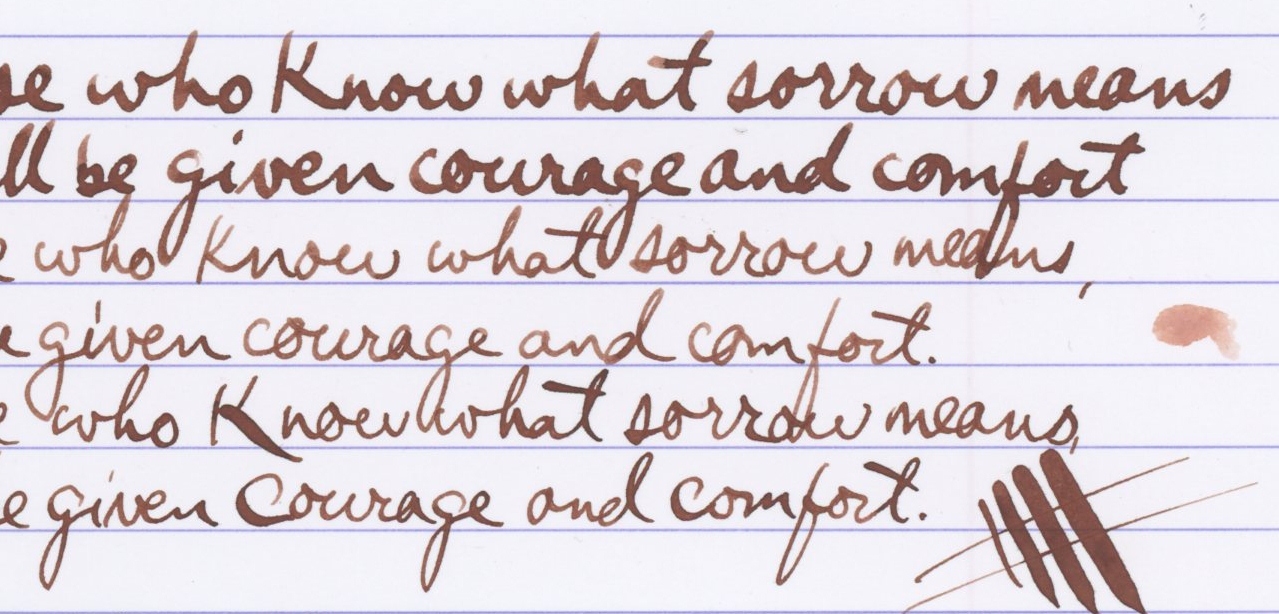 se who Know what sorrow means
ll be given courage and comfort
e who Know what sorrow means,
e given courage and comfort.
e who Know what sorrow means,
e given Courage and comfort.